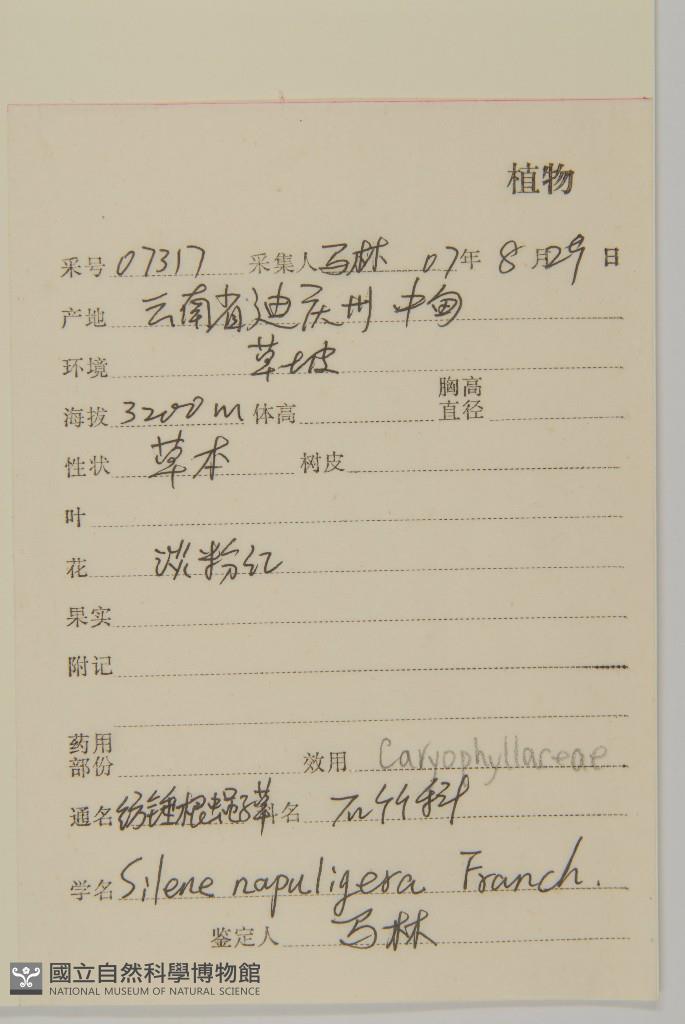 植物
采号 07317 采集人 马林 07年 8月29日
产地 云南省迪庆州 中甸
环境 草坡
海拔 3200m 体高 胸高直径
性状 草本 树皮
叶
花 淡粉红
果实
附记
药用部份 效用 Caryophyllaceae
通名 纺锤根蝇子草 科名 石竹科
学名 Silene napuligera Franch.
鉴定人 马林
國立自然科學博物館
NATIONAL MUSEUM OF NATURAL SCIENCE